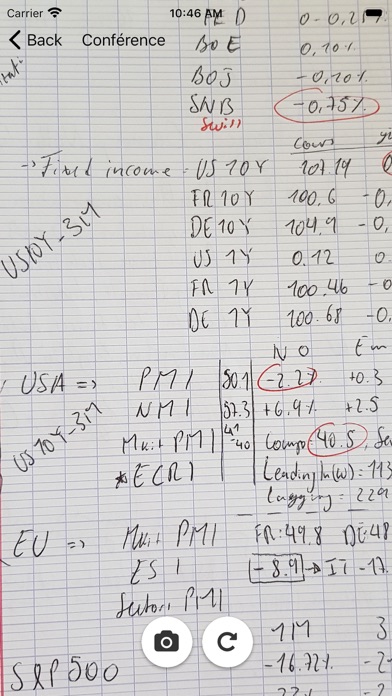 Carrier 10:46 AM
FED 0-0,25%
Back Conférence
BoE 0,10%
BOJ -0,10%
SNB -0,75%
Swiss
Cours
-> Fixed income - US 10Y 107.19 0
FR 10Y 100.6 -0,
DE 10Y 104.9 -0,
US 1Y 0.12 0.
FR 1Y 100.46 -0
DE 1Y 100.68 -0.
US10Y_3M
NO Em
USA => PMI 50.1 -2.2% +0.3
NMI 57.3 +6.4% +2.5
Mkit PMI Compo: 40.5, Se
US10Y-3M
*ECRI Leading In(w)=113
Lagging = 229
EU => Mkit PMI FR:49.8 DE:48
ESI -8.9 -> IT -17.
Sector PMI
1M 3
S&P500 -16.72% -2